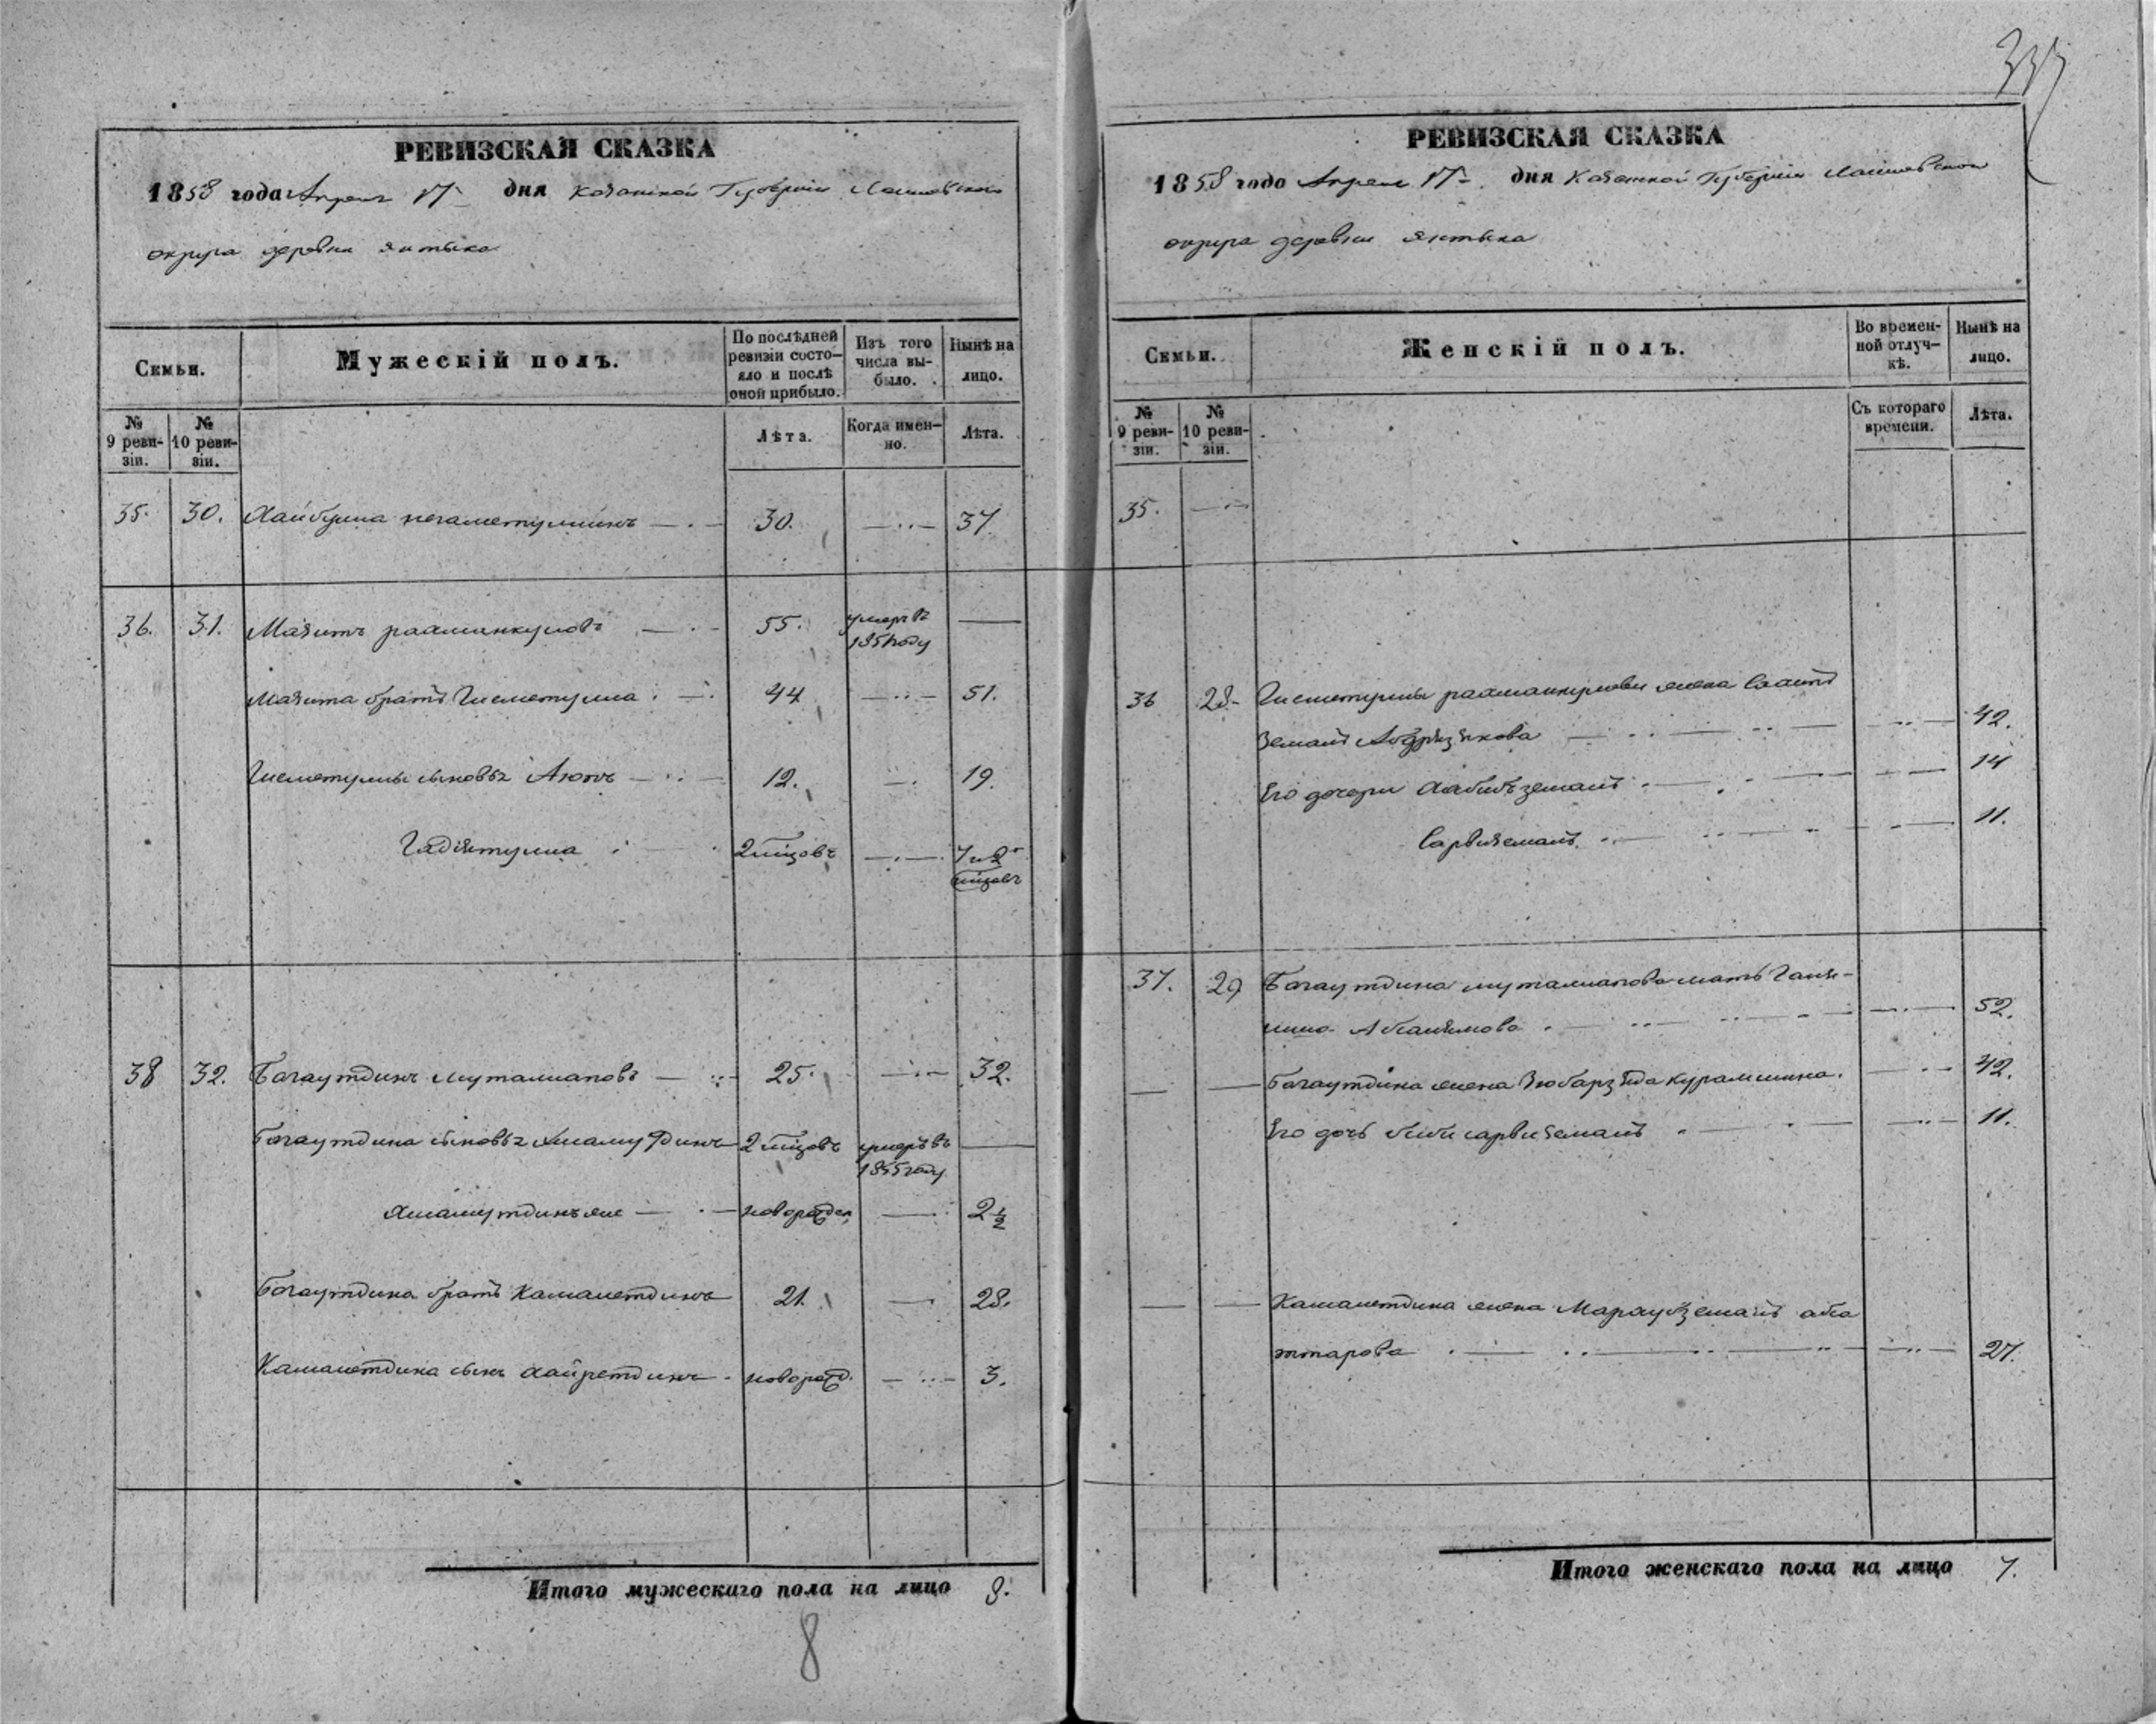 РЕВИЗСКАЯ СКАЗКА
1858 года Апреля 17 дня Казанской Губернии Лаишевскаго
округа деревни Янтыка
Семьи.
Мужескій полъ.
По послѣдней ревизіи состо-яло и послѣ оной прибыло.
Изъ того числа вы-было.
Нынѣ на лицо.
№ 9 реви-зіи.
№ 10 реви-зіи.
Лѣта.
Когда имен-но.
Лѣта.
35. 30. Хайбулла 30. 37
36. 31. Мазитъ рахманкуловъ 55. умеръ въ 185 году
Мазита братъ Гисметулла 44 51.
Гисметуллы сыновья Аюпъ 12. 19.
Гадиятулла 2 мѣсцовъ 7 и 2 мѣсцовъ
38 32. Багаутдинъ муталлаповъ 25. 32.
Багаутдина сыновья 2 мѣсцовъ умеръ въ 1855 году
новорожден 2 1/2
Багаутдина братъ Камалетдинъ 21. 28.
Камалетдина сынъ Хайретдинъ новорожд. 3.
Итого мужескаго пола на лицо 8.
8
РЕВИЗСКАЯ СКАЗКА
1858 года Апреля 17 дня Казанской Губернии Лаишевскаго
округа деревни Янтыка
Семьи.
Женскій полъ.
Во времен-ной отлуч-кѣ.
Нынѣ на лицо.
№ 9 реви-зіи.
№ 10 реви-зіи.
Съ котораго времени.
Лѣта.
35.
36 28 Гисметуллы рахманкулова жена
42.
Его дочери Хабибъземалъ 14
Сарвиземалъ 11.
37. 29 Багаутдина муталлапова мать
52.
Багаутдина жена Курамшина. 42.
Его дочь биби сарвиземалъ 11.
Камалетдина жена абса
ттарова 27.
Итого женскаго пола на лицо 7.